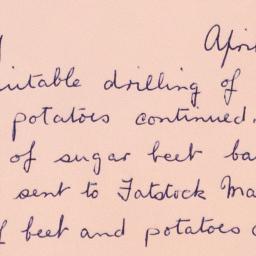 Apri
uitable drilling of
potatoes continued.
of sugar beet ba
sent to Fatstock Ma
beet and potatoes